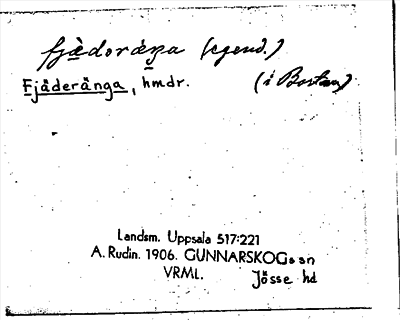 fjädoräŋa (egend.)
Fjäderänga, hmdr. (i Bortan)
Landsm. Uppsala 517:221
A. Rudin. 1906. GUNNARSKOGs sn
VRML. Jösse hd